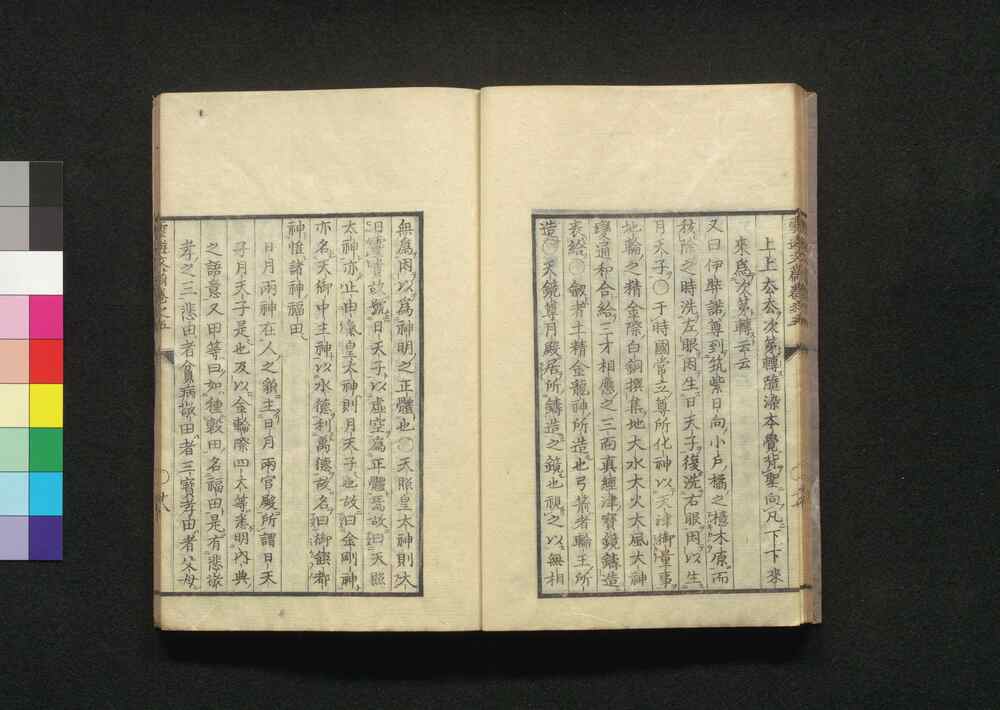 上上去去次第轉隨染本覺背聖向凡下下來
來爲次第轉云云
又曰伊弉諾尊到筑紫日向小戶橘之檍木原而
祓除之時洗左眼因生日天子復洗右眼因以生
月天子○于時國常立尊所化神以天津御量事
地輪之精金際白銅撰集地大水大火大風大神
變通和合給三才相應之三面真經津寶鏡鑄造
表給○劔者土精金龍神所造也弓箭者輪王所
造○天鏡尊月殿居所鑄造之鏡也視之以無相
無爲因以爲神明之正體也○天照皇太神則大
日靈貴故號日天子以虛空爲正體焉故曰天照
太神亦止由氣皇太神則月天子也故曰金剛神
亦名天御中主神以水德利萬德故名曰御饌都
神惟諸神福田
日月兩神在人之貌主日月兩宮殿所謂日天
子月天子是也及以金輪際四大等悉明內典
之語意又田等曰如種穀田名福田是有悲敬
孝之三悲田者貧病敬田者三寶孝田者父母